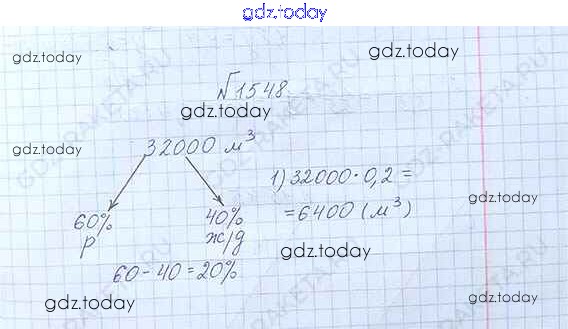 gdz.today
gdz.today
gdz.today
№1548.
gdz.today
32000 м³
gdz.today
1) 32000·0,2=
=6400 (м³)
gdz.today
60%
р
40%
ж/д
gdz.today
60-40=20%
gdz.today
gdz.today